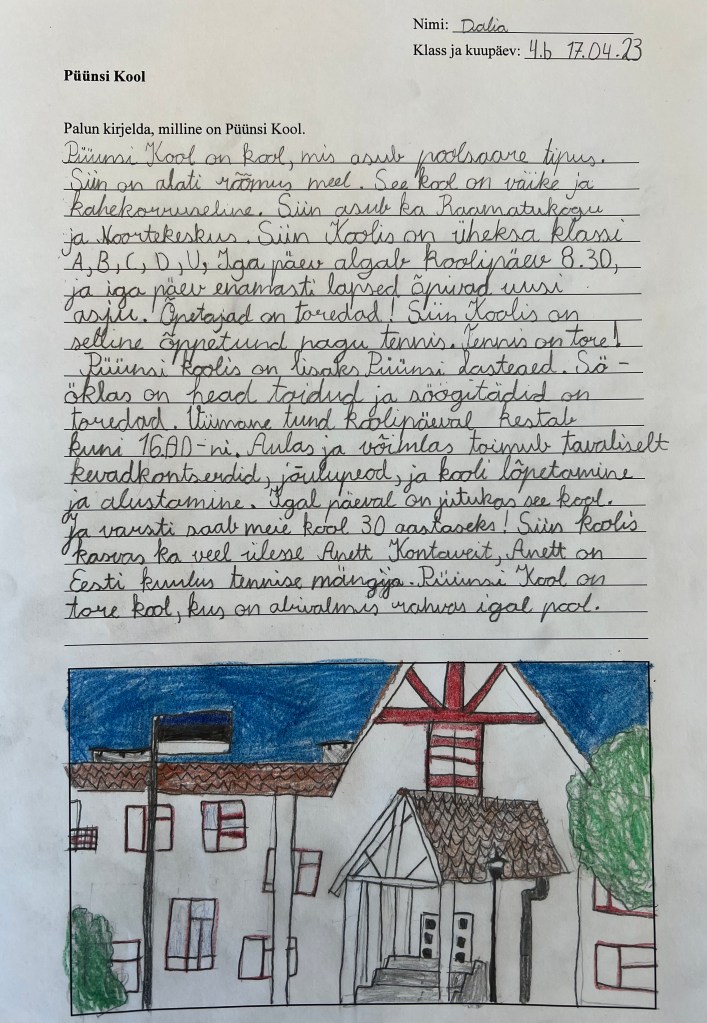 Nimi: Dalia
Klass ja kuupäev: 4.b 17.04.23
Püünsi Kool
Palun kirjelda, milline on Püünsi Kool.
Püünsi Kool on kool, mis asub poolsaare tipus.
Siin on alati rõõmus meel. See kool on väike ja
kahekorruseline. Siin asub ka Raamatukogu
ja Noortekeskus. Siin Koolis on üheksa klassi
A, B, C, D, U, Iga päev algab koolipäev 8.30,
ja iga päev enamasti lapsed õpivad uusi
asju. Õpetajad on toredad! Siin Koolis on
selline õppetund nagu tennis. Tennis on tore!
Püünsi koolis on lisaks Püünsi Lasteaed. Sö-
öklas on head toidud ja söögitädid on
toredad. Viimane tund koolipäeval kestab
kuni 16.00-ni. Aulas ja võimlas toimub tavaliselt
kevadkontserdid, jõulupeod, ja kooli lõpetamine
ja alustamine. Igal päeval on jutukas see kool.
Ja varsti saab meie kool 30 aastaseks! Siin koolis
kasvas ka veel ülesse Anett Kontaveit, Anett on
Eesti kuulus tennise mängija. Püünsi Kool on
tore kool, kus on abivalmis rahvas igal pool.